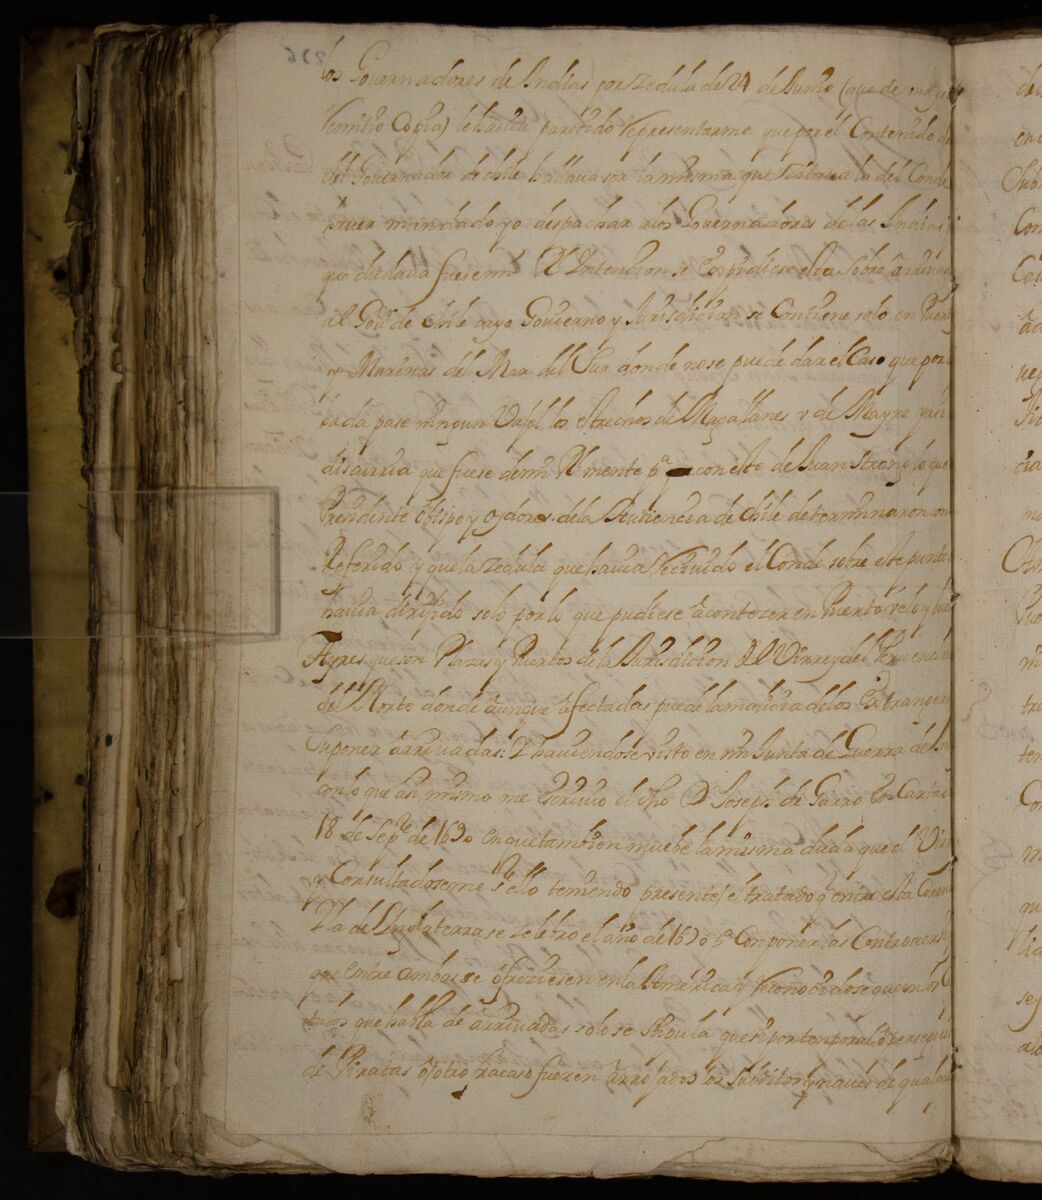 los Governadores de Indias por zedula de 21 de Junio (que de
remitio Copia) le havia parecido representarme que por el Contenido de
del Governador de chile hallava ser la misma que la del Conde
haver mandado yo despachar a los Governadores de las Indias
que dudava fuese mi Rl Intencion se Expidiese esta sobre arrivadas
al Govr de Chile cuyo Govierno y Jurisdicion se Contiene solo en Puertos
y Marinas del Mar del Sur donde no se puede dar el Caso que por
pase ningun Vajel los estrechos de Magallanes v de Mayre y asi
discurria que fuese de mi Rl mente pa con este de Juan lo que
Presidente Obispo y Oydores de la Audiencia de Chile determinaron
Referido y que la zedula que havia Recivido el Conde sobre este punto
havia dirijido solo por lo que pudiese acontezer en Puerto velo y bue
Ayres que son Plazas y Puertos de la Jurisdicion del Virrey del Peru en
del Norte donde aunque afectadas puede la malicia de los Extrangeros
suponer arrivadas: Y haviendose visto en mi Junta de Guerra de In
con lo que asi mismo me escrivio el dho Dn Joseph de Garro en Carta
18 de Sepre de 1690 en que tambien mueve la misma duda que el Virr
y Consultadoseme sre ello teniendo presente el tratado q entre esta Corona
Y la de Inglaterra se zelebro el año de 1670 pa Componer las Controversias
que entre ambas se ofreziesen en la America y Reconocidose que en los
que habla de arrivadas solo se stipula que si por temporal o persecu
de Piratas o otro acaso fueren arrojados los subditos y naves de qualqui